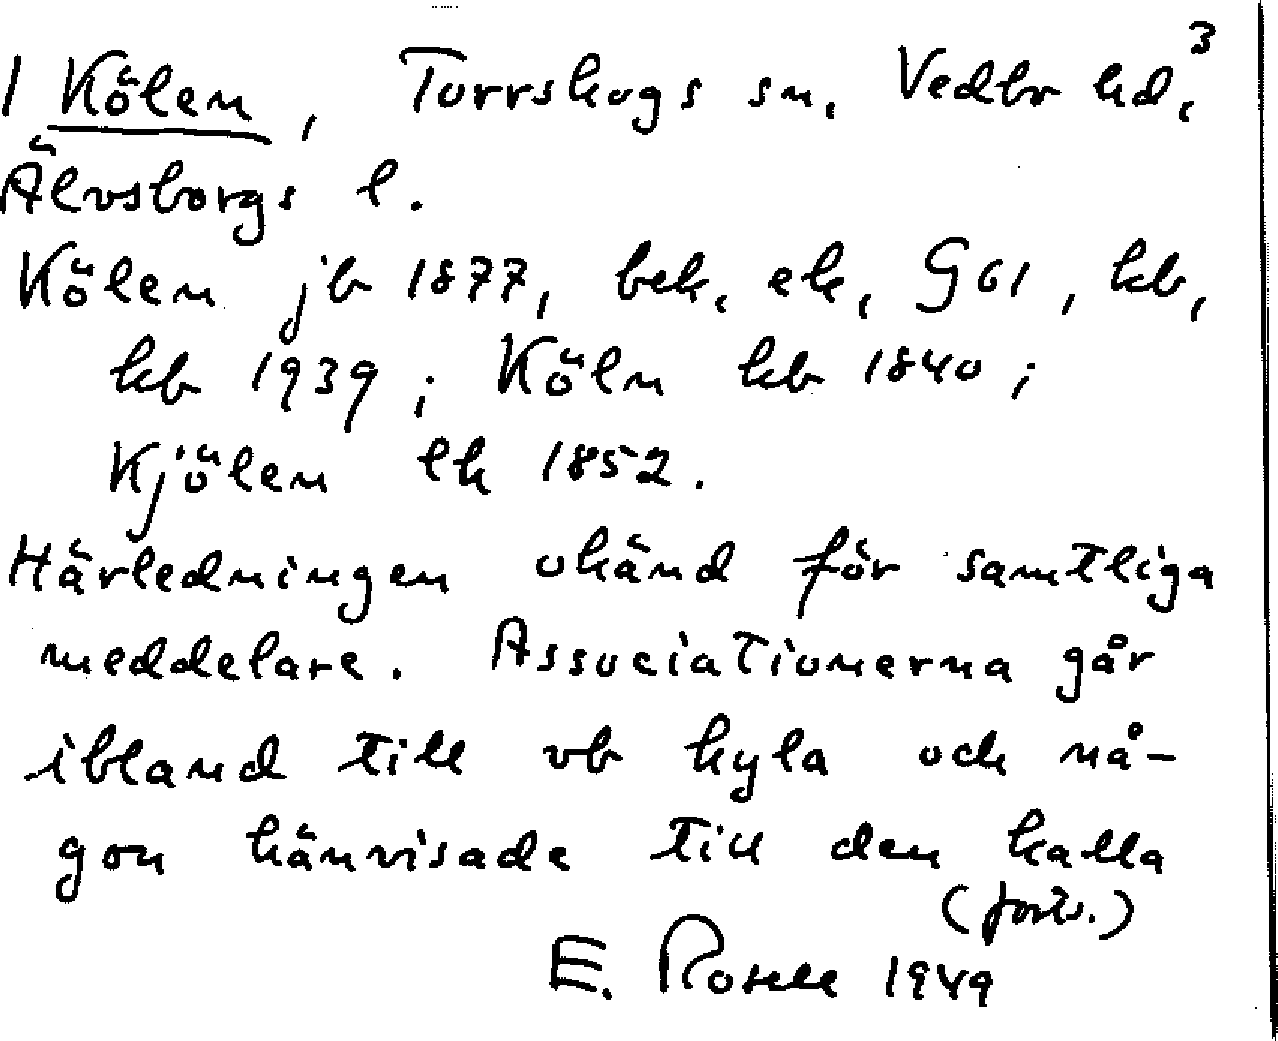 3
1 Kölen, Torrskogs sn, Vedbo hd,
Älvsborgs l.
Kölen jb 1877, bek, ek, G61, kb,
kb 1939; Köln kb 1840;
Kjölen lk 1852.
Härledningen okänd för samtliga
meddelare. Associationerna går
ibland till vb kyla och nå-
gon hänvisade till den kalla
(forts.)
E. Rosell 1949